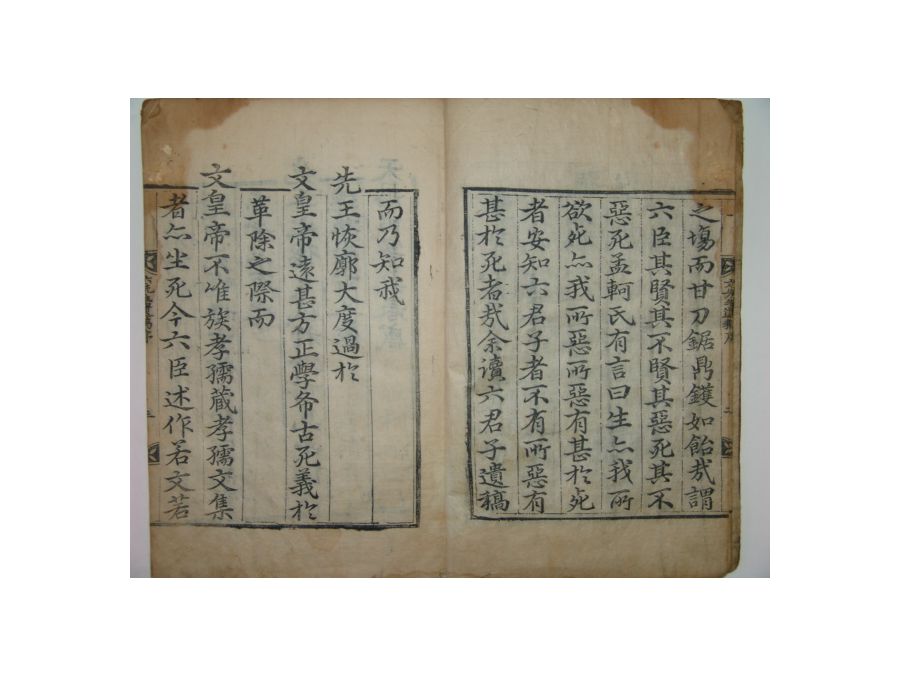 之場而甘刀鋸鼎鑊如飴哉謂
六臣其賢其不賢其惡死其不
惡死孟軻氏有言曰生亦我所
欲死亦我所惡所惡有甚於死
者安知六君子者不有所惡有
甚於死者哉余讀六君子遺稿
而乃知我
先王恢廓大度過於
文皇帝遠甚方正學希古死義於
革除之際而
文皇帝不唯族孝孺蔵孝孺文集
者亦坐死今六臣述作若文若